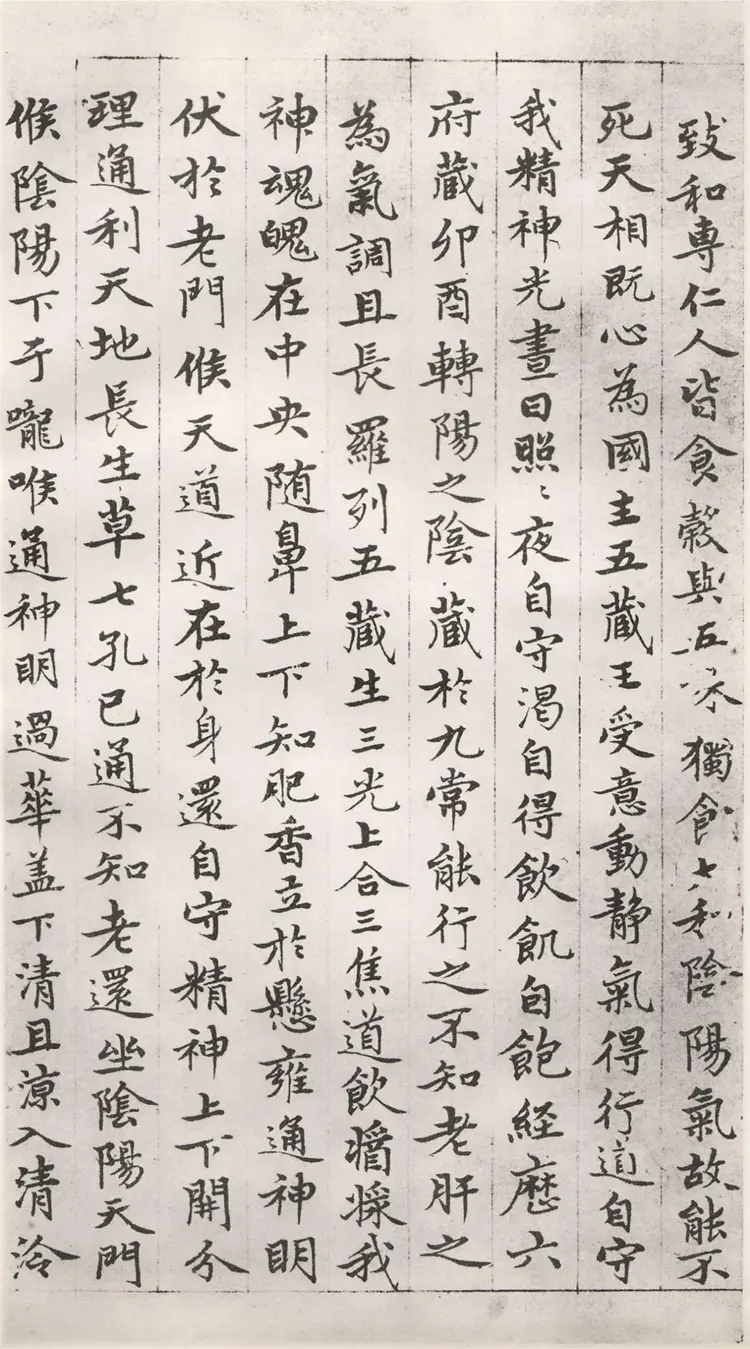 致和専仁人皆食穀與五味獨食大和陰陽氣故能不
死天相既心為國主五藏王受意動静氣得行道自守
我精神光晝日照〻夜自守渴自得飲飢自飽経歷六
府藏卯酉轉陽之陰藏於九常能行之不知老肝之
為氣調且長羅列五藏生三光上合三焦道飲醬漿我
神魂魄在中央随鼻上下知肥香立於懸雍通神明
伏於老門候天道近在於身還自守精神上下開分
理通利天地長生草七孔已通不知老還坐陰陽天門
候陰陽下于嚨喉通神明過華盖下清且凉入清泠